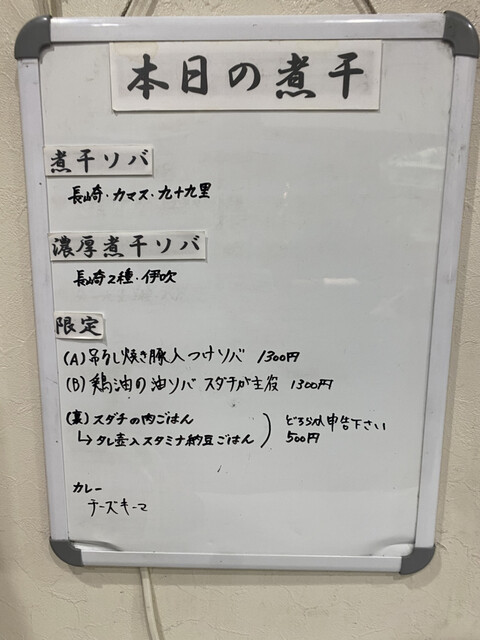 本日の煮干
煮干ソバ
長崎・カマス・九十九里
濃厚煮干ソバ
長崎2種・伊吹
限定
(A) 吊るし焼き豚入つけソバ 1300円
(B) 鶏油の油ソバ スダチが主役 1300円
(裏) スダチの肉ごはん
↳ タレ壺入スタミナ納豆ごはん
どちらか申告下さい
500円
カレー
チーズキーマ